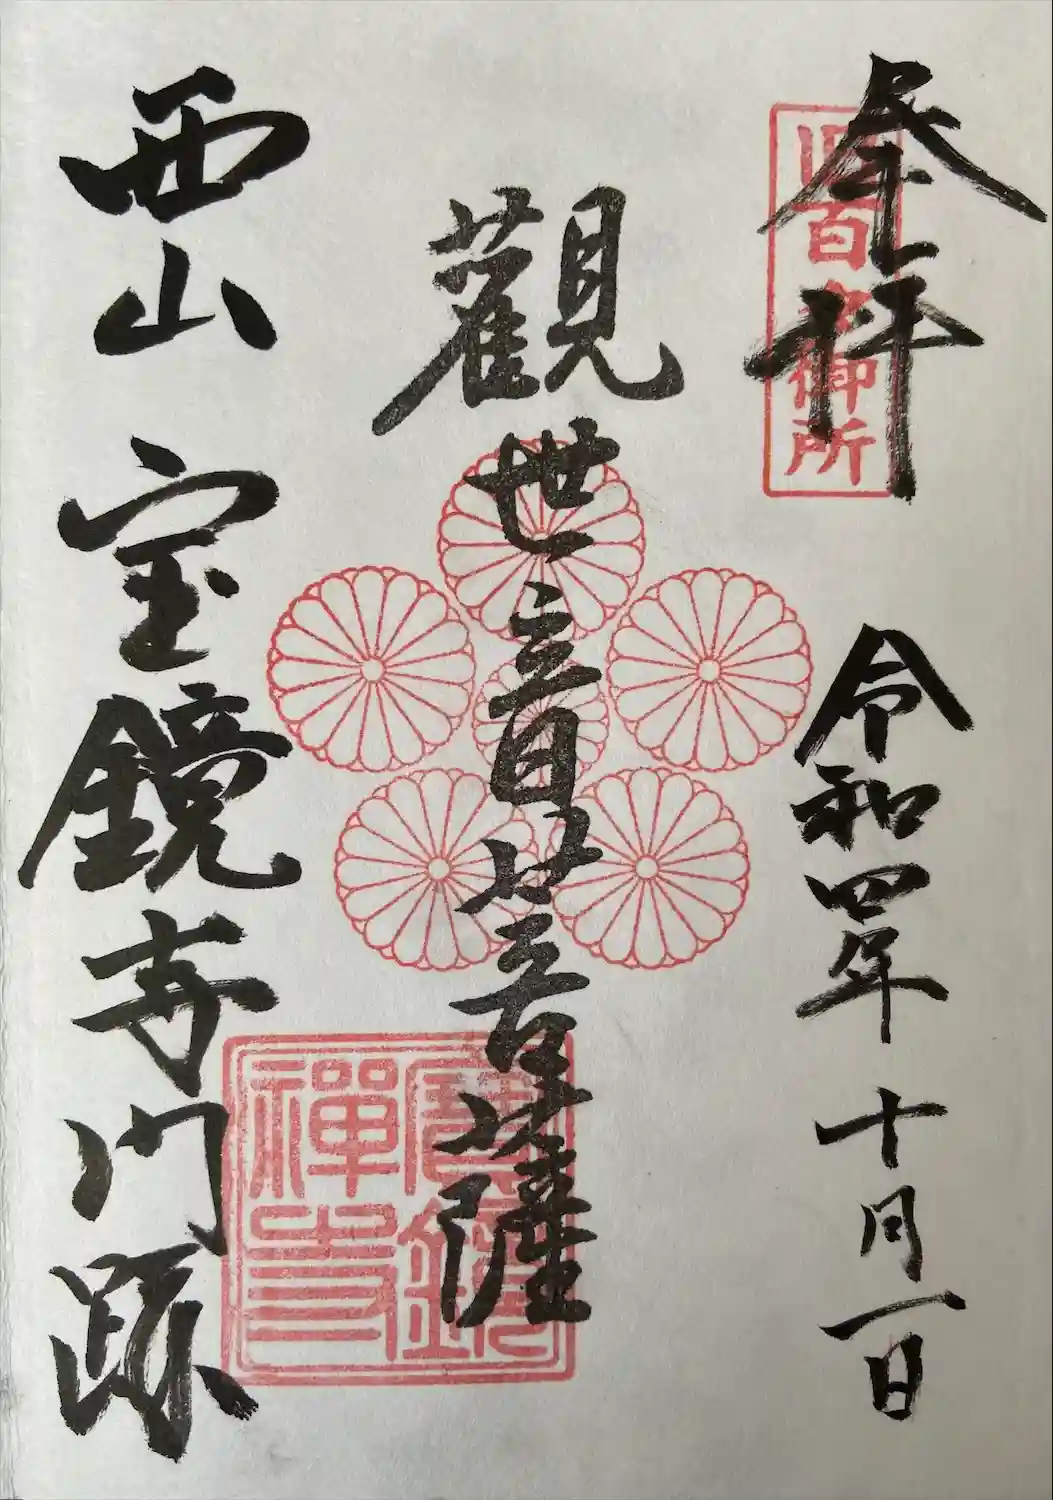 奉拝
旧百々御所
令和四年十月一日
觀世音菩薩
西山宝鏡寺門跡
寶鏡
禅寺